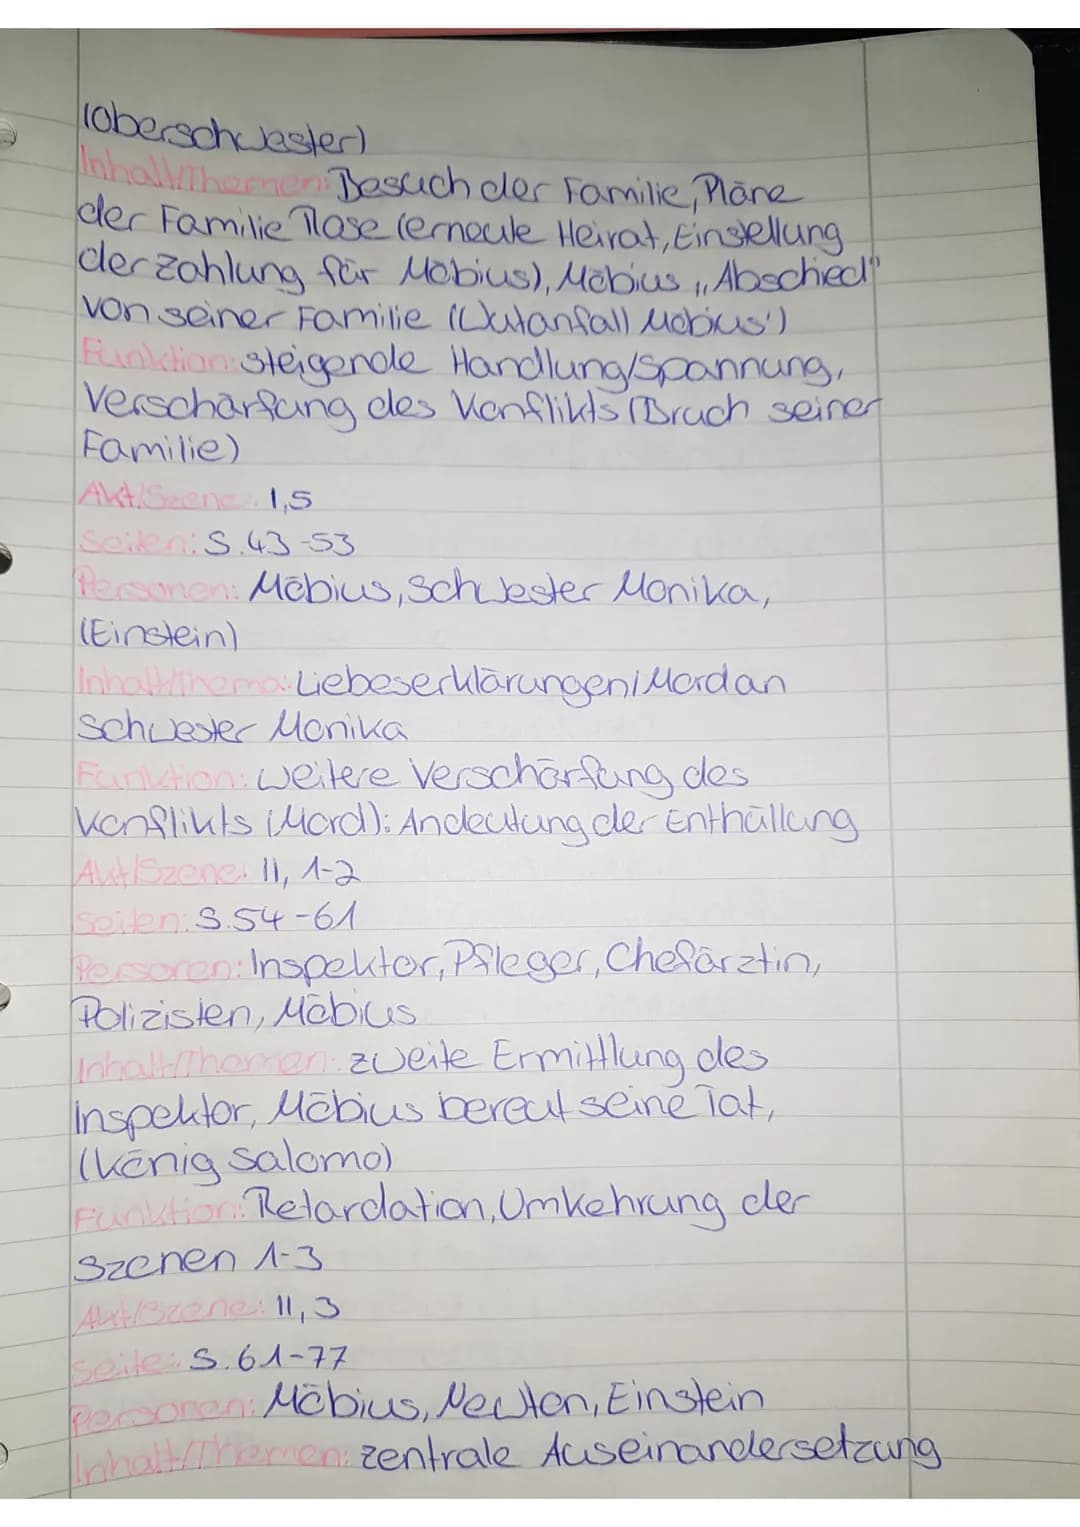 (Oberschwester)
Inhalt/Themen: Besuch der Familie, Pläne
der Familie Rose (erneute Heirat, Einstellung
der Zahlung für Möbius), Möbius „Abschied"
von seiner Familie (Wutanfall Möbius')
Funktion: steigende Handlung/Spannung,
Verschärfung des Konflikts (Bruch seiner
Familie)
Akt/Szene: 1,5
Seiten: S. 43-53
Personen: Möbius, Schwester Monika,
(Einstein)
Inhalt/Thema: Liebeserklärungen/Mord an
Schwester Monika
Funktion: weitere Verschärfung des
Konflikts (Mord); Andeutung der Enthüllung
Akt/Szene: II, 1-2
Seiten: S. 54-61
Personen: Inspektor, Pfleger, Chefärztin,
Polizisten, Möbius
Inhalt/Themen: zweite Ermittlung des
Inspektor, Möbius bereut seine Tat,
(König Salomo)
Funktion: Retardation, Umkehrung der
Szenen 1-3
Akt/Szene: II, 3
Seite: S. 61-77
Personen: Möbius, Newton, Einstein
Inhalt/Themen: zentrale Auseinandersetzung